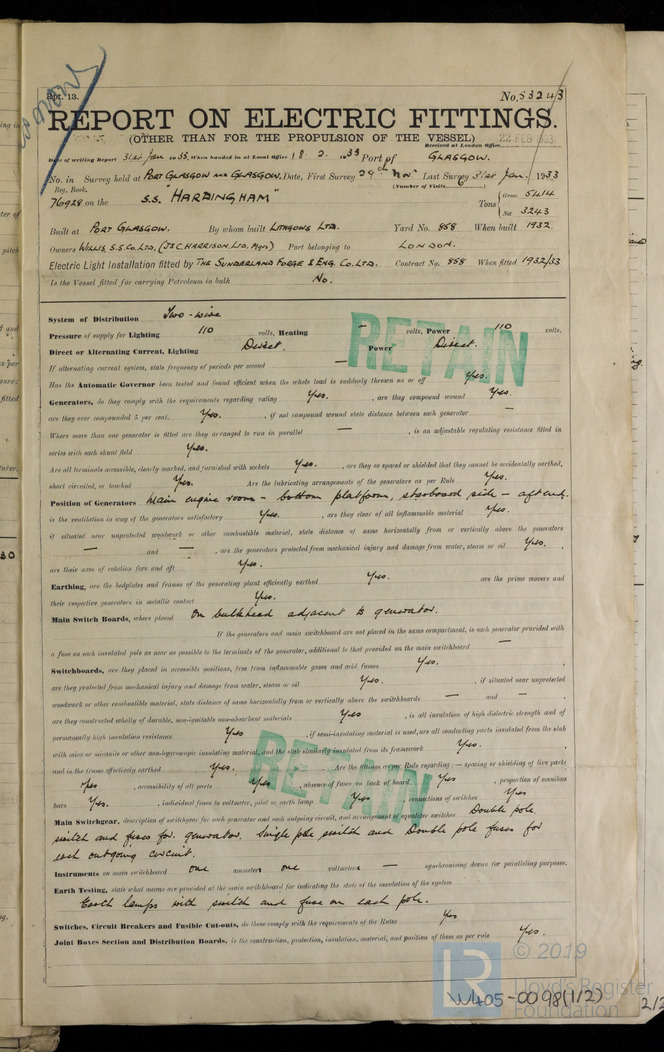 Rpt. 13.
No. 53243
REPORT ON ELECTRIC FITTINGS.
(OTHER THAN FOR THE PROPULSION OF THE VESSEL)
Received at London Office 22 FEB 1933
Date of writing Report 31st Jan 1933. When handed in at Local Office 18. 2. 1933 Port of GLASGOW.
No. in Survey held at PORT GLASGOW AND GLASGOW, Date, First Survey 29th Nov Last Survey 31st Jan. 1933
Reg. Book. (Number of Visits
76928 on the S.S. "HARDINGHAM" Tons { Gross 5414
Net 3243
Built at PORT GLASGOW. By whom built LITHGOWS LTD. Yard No. 858 When built 1932.
Owners WILLIS, S.S. CO. LTD, (J&C. HARRISON, LTD, Mgrs) Port belonging to LONDON.
Electric Light Installation fitted by THE SUNDERLAND FORGE & ENG. CO. LTD. Contract No. 858 When fitted 1932/33
Is the Vessel fitted for carrying Petroleum in bulk No.
System of Distribution Two-wire
Pressure of supply for Lighting 110 volts, Heating — volts, Power 110 volts.
Direct or Alternating Current, Lighting Direct. Power Direct.
If alternating current system, state frequency of periods per second —
Has the Automatic Governor been tested and found efficient when the whole load is suddenly thrown on or off Yes.
Generators, do they comply with the requirements regarding rating Yes. , are they compound wound Yes.
are they over compounded 5 per cent. Yes. , if not compound wound state distance between each generator —
Where more than one generator is fitted are they arranged to run in parallel — , is an adjustable regulating resistance fitted in
series with each shunt field Yes.
Are all terminals accessible, clearly marked, and furnished with sockets Yes. , are they so spaced or shielded that they cannot be accidentally earthed,
short circuited, or touched Yes. Are the lubricating arrangements of the generators as per Rule Yes.
Position of Generators Main engine room – bottom platform, starboard side – aft end.
is the ventilation in way of the generators satisfactory Yes. , are they clear of all inflammable material Yes.
if situated near unprotected woodwork or other combustible material, state distance of same horizontally from or vertically above the generators
— and — , are the generators protected from mechanical injury and damage from water, steam or oil Yes. ,
are their axes of rotation fore and aft Yes.
Earthing, are the bedplates and frames of the generating plant efficiently earthed Yes. are the prime movers and
their respective generators in metallic contact Yes.
Main Switch Boards, where placed On bulkhead adjacent to generator.
If the generators and main switchboard are not placed in the same compartment, is each generator provided with
a fuse on each insulated pole as near as possible to the terminals of the generator, additional to that provided on the main switchboard —
Switchboards, are they placed in accessible positions, free from inflammable gases and acid fumes Yes. ,
are they protected from mechanical injury and damage from water, steam or oil Yes. , if situated near unprotected
woodwork or other combustible material, state distance of same horizontally from or vertically above the switchboards — and — ,
are they constructed wholly of durable, non-ignitable non-absorbent materials Yes , is all insulation of high dielectric strength and of
permanently high insulation resistance Yes , if semi-insulating material is used, are all conducting parts insulated from the slab
with mica or micanite or other non-hygroscopic insulating material, and the slab similarly insulated from its framework Yes. ,
and is the frame effectively earthed Yes. Are the fittings as per Rule regarding :— spacing or shielding of live parts
Yes , accessibility of all parts Yes , absence of fuses on back of board Yes , proportion of omnibus
bars Yes. , individual fuses to voltmeter, pilot or earth lamp Yes connections of switches Yes
Main Switchgear, description of switchgear for each generator and each outgoing circuit, and arrangement of equaliser switches Double pole
switch and fuses for generator. Single pole switch and Double pole fuses for
each outgoing circuit.
Instruments on main switchboard one ammeters one voltmeters — synchronising device for paralleling purposes.
Earth Testing, state what means are provided at the main switchboard for indicating the state of the insulation of the system
Earth lamps with switch and fuse on each pole.
Switches, Circuit Breakers and Fusible Cut-outs, do these comply with the requirements of the Rules Yes
Joint Boxes Section and Distribution Boards, is the construction, protection, insulation, material, and position of these as per rule Yes.
RETAIN
RETAIN
LR
© 2019
Lloyd's Register
Foundation
W405-0098(1/2)
2/2